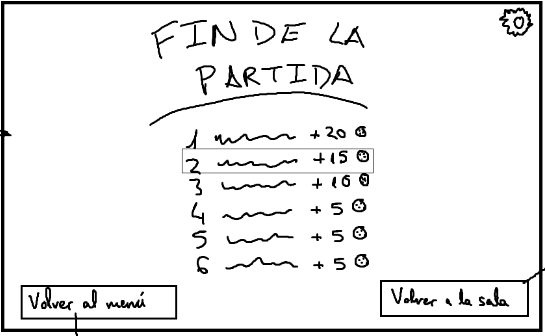 FIN DE LA
PARTIDA
1 +20
2 +15
3 +10
4 +5
5 +5
6 +5
Volver al menú
Volver a la sala